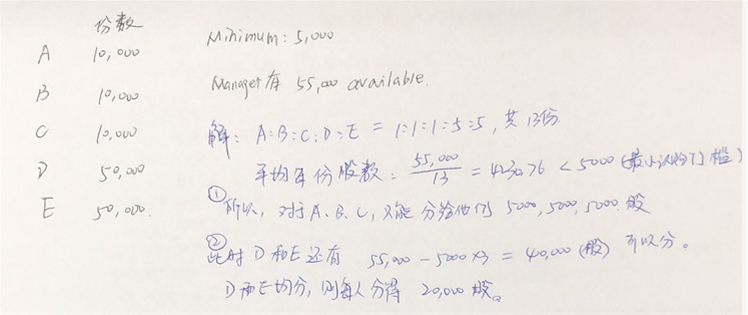 份数
A 10,000
B 10,000
C 10,000
D 50,000
E 50,000.
Minimum: 5,000
Manager有 55,000 available.
解: A:B:C:D:E = 1:1:1:5:5, 共13份
平均每份股数: 55,000/13 = 4230.76 < 5000 (最小认购门槛)
① 所以, 对于A、B、C, 只能分给他们 5000, 5000, 5000 股
② 此时 D和E还有 55,000 - 5000×3 = 40,000 (股) 可以分。
D和E均分, 则每人分得 20,000 股。